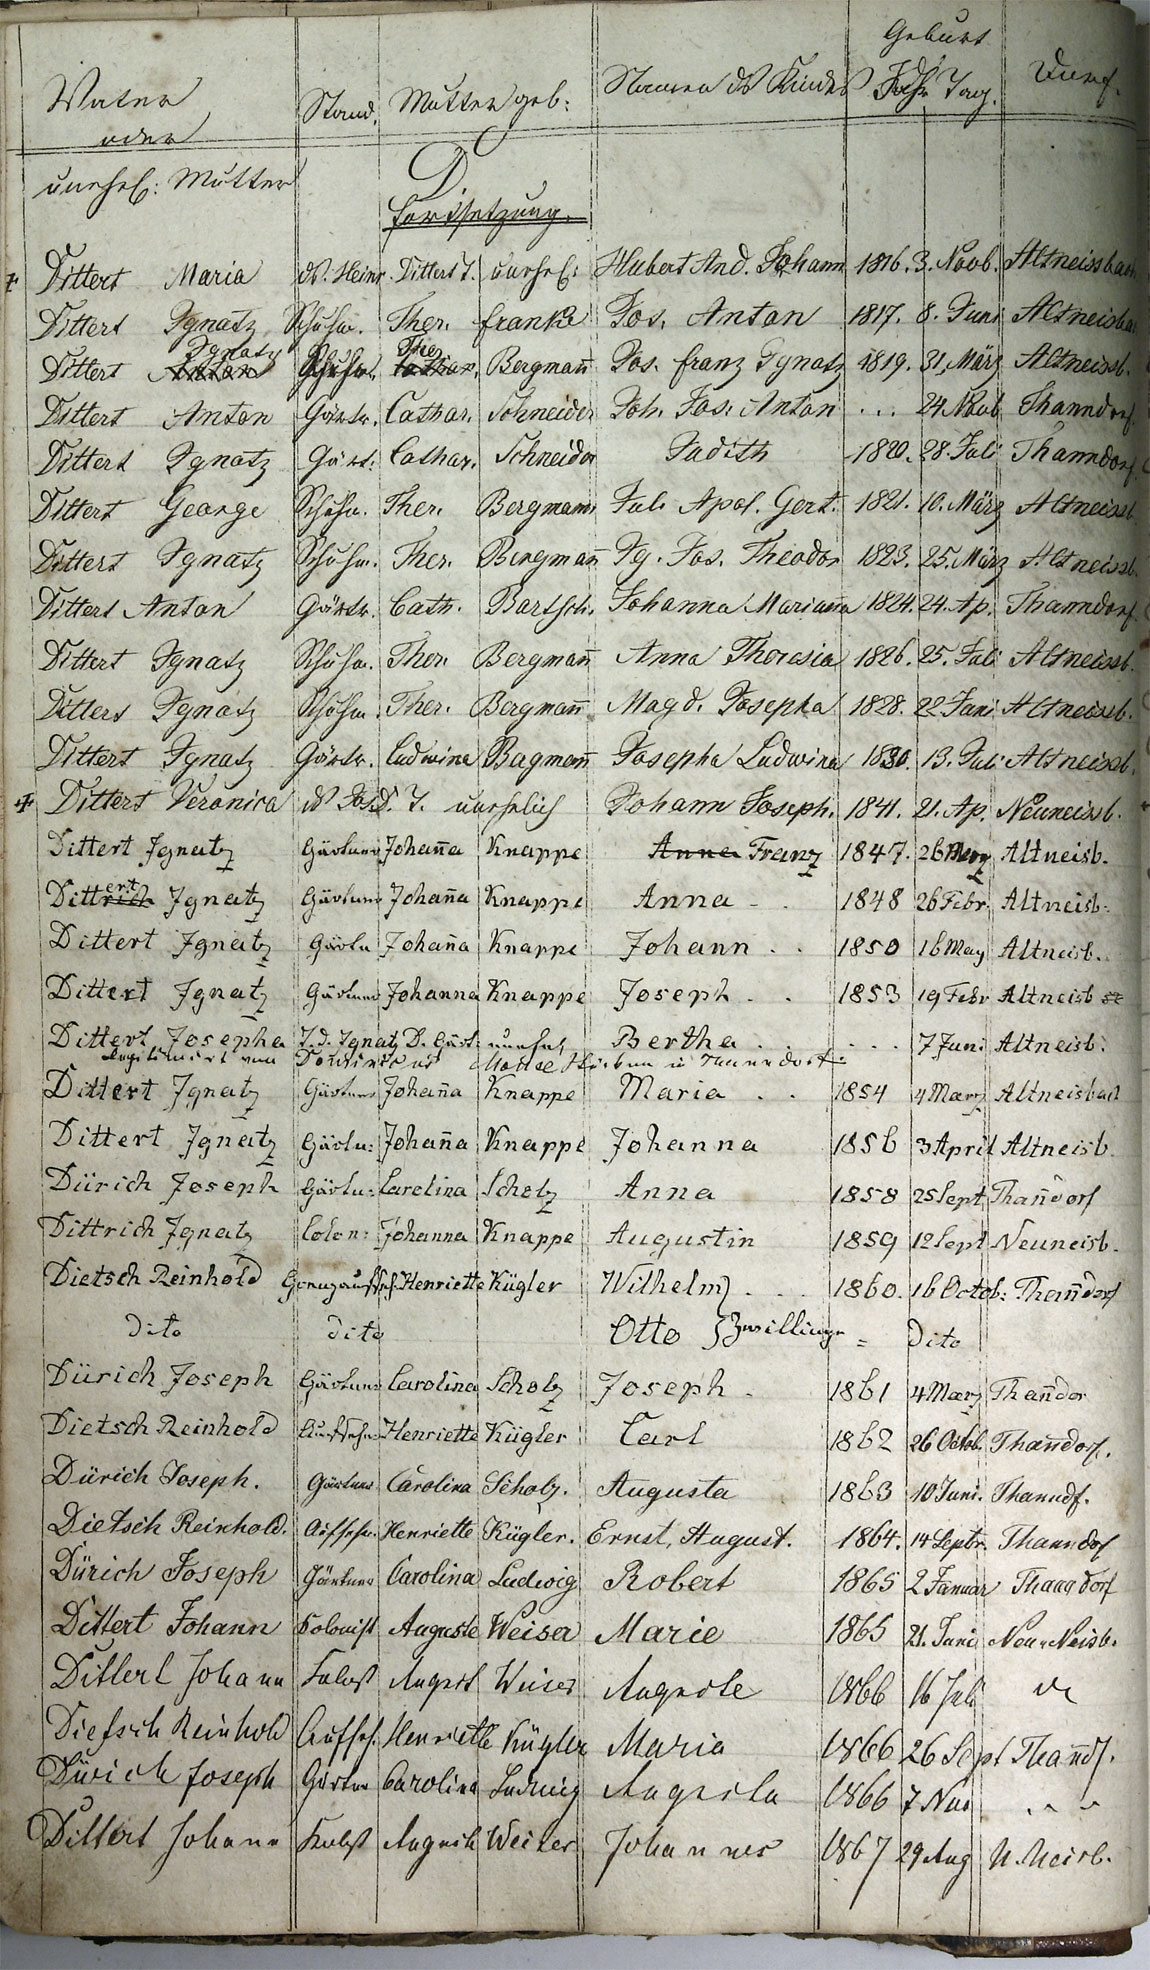 Geburt
Vater Stand. Mutter geb: Namen des Kindes Jahr Tag. Dorf.
oder
unehel: Mutter
D.
Fortsetzung.
Dittert Maria ds. Heinr. Dittert T. unehel: Hubert And. Johann 1816. 3. Novb. Altneissbach
Dittert Ignatz Schuhm. Ther. Franke Jos. Anton 1817. 8. Juni Altneisbac
Ignatz Ther.
Dittert Anton Schuhm. Cathar. Bergmañ Jos. Franz Ignatz 1819. 31. März Altneissb.
Dittert Anton Gärtr. Cathar. Schneider Joh. Jos. Anton ... 24 Novb. Thanndorf.
Dittert Ignatz Gärt: Cathar. Schneider Judith 1820. 28. Juli Thanndorf.
Dittert George Schuhm. Ther. Bergmann Jul. Apol. Gert. 1821. 10. März Altneissb.
Dittert Ignatz Schuhm. Ther. Bergmañ Ig. Jos. Theodor 1823. 25. März Altneissb.
Dittert Anton Gärtr. Cath. Bartsch. Johanna Mariaña 1824. 24. Ap. Thanndorf.
Dittert Ignatz Schuhm. Ther. Bergmañ Anna Theresia 1826. 25. Juli Altneissb.
Dittert Ignatz Schuhm. Ther. Bergmañ Magd. Josepha 1828. 22 Juni Altneissb.
Dittert Ignatz Gärtr. Ludwina Bagmañ Josepha Ludwina 1830. 13. Juli Altneissb.
Dittert Veronica ds Jos. D. T. unehelich Johann Joseph. 1841. 21. Ap. Neuneissb.
Dittert Ignatz Gärtner Johaña Knappe Anna Franz 1847. 26 Merz Altneisb.
ert
Dittrich Ignatz Gärtner Johaña Knappe Anna - . 1848 26 Febr. Altneisb:
Dittert Ignatz Gärtn Johaña Knappe Johann . . 1850 16 May Altneisb.
Dittert Ignatz Gärtner Johanna Knappe Joseph . . 1853 19 Febr Altneisb
Dittert Josepha T. d. Ignatz D. Gärt: unehel Bertha . . . . . 7 Juni Altneisb:
legitimirt von Thanndorf.
Dittert Ignatz Gärtner Johaña Knappe Maria . . 1854 4 Merz Altneisbach
Dittert Ignatz Gärtn: Johaña Knappe Johanna 1856 3 April Altneisb.
Dürich Joseph Gärtn: Carolina Scholz Anna 1858 25 Sept Thañdorf
Dittrich Ignatz Colon: Johanna Knappe Augustin 1859 12 Sept Neuneisb.
Dietsch Reinhold Grenzaufseh. Henriette Kügler Wilhelm} . . . 1860. 16 Octob: Thañdorf
dito dito Otto } Zwillinge = dito
Dürich Joseph Gärtner Carolina Scholz Joseph . 1861 4 Merz Thañdor
Dietsch Reinhold Aufseher Henriette Kügler Carl 1862 26 Octob. Thañdorf.
Dürich Joseph. Gärtner Carolina Scholz. Augusta 1863 10 Juni. Thanndf.
Dietsch Reinhold. Aufseh. Henriette Kügler. Ernst, August. 1864. 14 Septbr. Thanndorf
Dürich Joseph Gärtner Carolina Ludwig Robert 1865 2 Januar Thanndorf
Dittert Johann Kolonist Auguste Weiser Marie 1865 21. Juni Neu-Neisb.
Dittert Johann Kolnst August Weiser Auguste 1866 16 Juli
Dietsch Reinhold Aufseh. Henriette Kügler Maria 1866 26 Sept Thañdf.
Dürich Joseph Gärtner Carolina Ludwig Augusta 1866 7 Nov " "
Dittert Johann Kolnst August Weiser Johannes 1867 29 Aug N. Neisb.